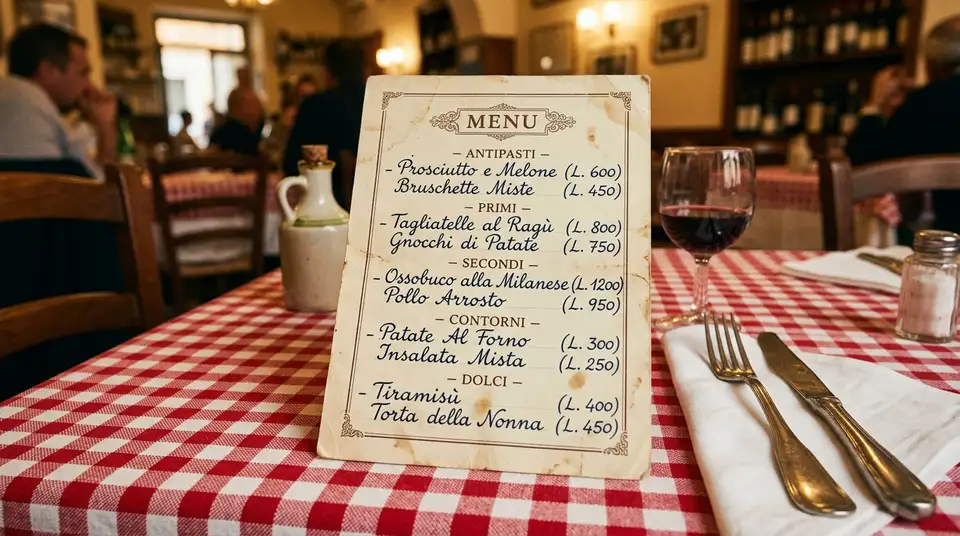 MENU
– ANTIPASTI –
- Prosciutto e Melone (L. 600)
Bruschette Miste (L. 450)
– PRIMI –
- Tagliatelle al Ragù (L. 800)
Gnocchi di Patate (L. 750)
– SECONDI –
- Ossobuco alla Milanese (L. 1200)
Pollo Arrosto (L. 950)
– CONTORNI –
- Patate Al Forno (L. 300)
Insalata Mista (L. 250)
– DOLCI –
- Tiramisù (L. 400)
Torta della Nonna (L. 450)